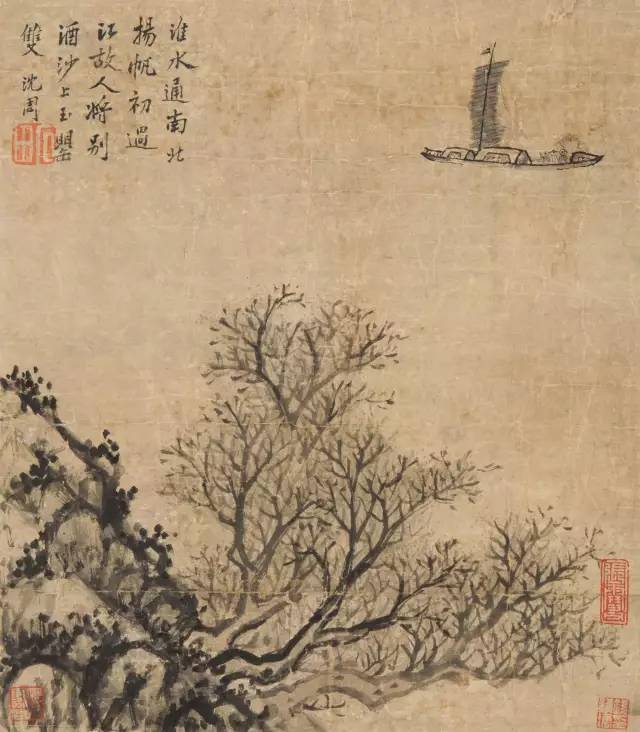 淮水通南北
揚帆初過
江故人將別
酒沙上玉罌
雙 沈周